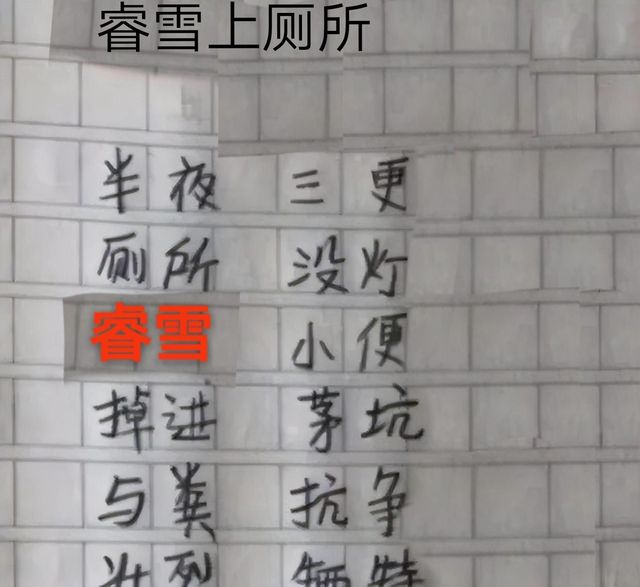 睿雪上厕所
半夜 三更
厕所 没灯
睿雪 小便
掉进 茅坑
与粪 抗争
壮烈 牺牲